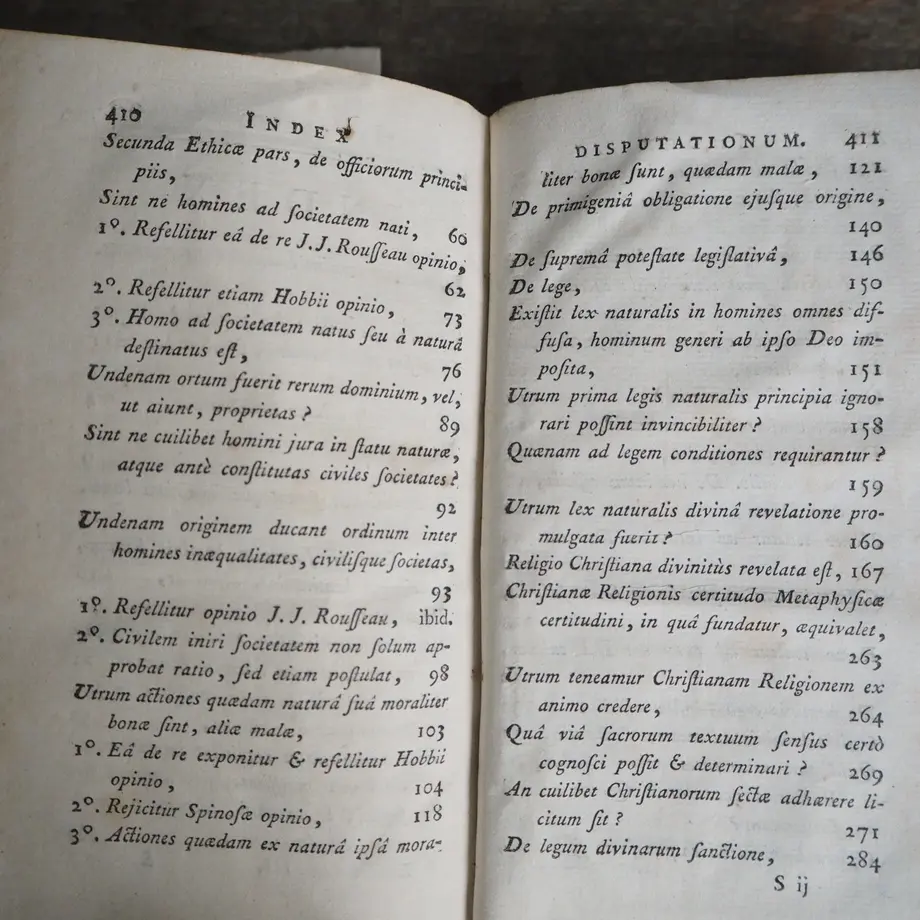 410 INDEX
Secunda Ethicæ pars, de officiorum princi-
piis,
Sint ne homines ad ſocietatem nati, 60
1°. Refellitur eâ de re J. J. Rouſſeau opinio,
62
2°. Refellitur etiam Hobbii opinio, 73
3°. Homo ad ſocietatem natus ſeu à naturâ
deſtinatus eſt, 76
Undenam ortum fuerit rerum dominium, vel,
ut aiunt, proprietas ? 89
Sint ne cuilibet homini jura in ſtatu naturæ,
atque antè conſtitutas civiles ſocietates ?
92
Undenam originem ducant ordinum inter
homines inæqualitates, civiliſque ſocietas,
93
1°. Refellitur opinio J. J. Rouſſeau, ibid.
2°. Civilem iniri ſocietatem non ſolum ap-
probat ratio, ſed etiam poſtulat, 98
Utrum actiones quædam naturâ ſuâ moraliter
bonæ ſint, aliæ malæ, 103
1°. Eâ de re exponitur & refellitur Hobbii
opinio, 104
2°. Rejicitur Spinoſæ opinio, 118
3°. Actiones quædam ex naturâ ipſâ mora-
DISPUTATIONUM. 411
liter bonæ ſunt, quædam malæ, 121
De primigeniâ obligatione ejuſque origine,
140
De ſupremâ poteſtate legiſlativâ, 146
De lege, 150
Exiſtit lex naturalis in homines omnes dif-
fuſa, hominum generi ab ipſo Deo im-
poſita, 151
Utrum prima legis naturalis principia igno-
rari poſſint invincibiliter ? 158
Quænam ad legem conditiones requirantur ?
159
Utrum lex naturalis divinâ revelatione pro-
mulgata fuerit ? 160
Religio Chriſtiana divinitùs revelata eſt, 167
Chriſtianæ Religionis certitudo Metaphyſicæ
certitudini, in quâ fundatur, æquivalet,
263
Utrum teneamur Chriſtianam Religionem ex
animo credere, 264
Quâ viâ ſacrorum textuum ſenſus certò
cognoſci poſſit & determinari ? 269
An cuilibet Chriſtianorum ſectæ adhærere li-
citum ſit ? 271
De legum divinarum ſanctione, 284
S ij